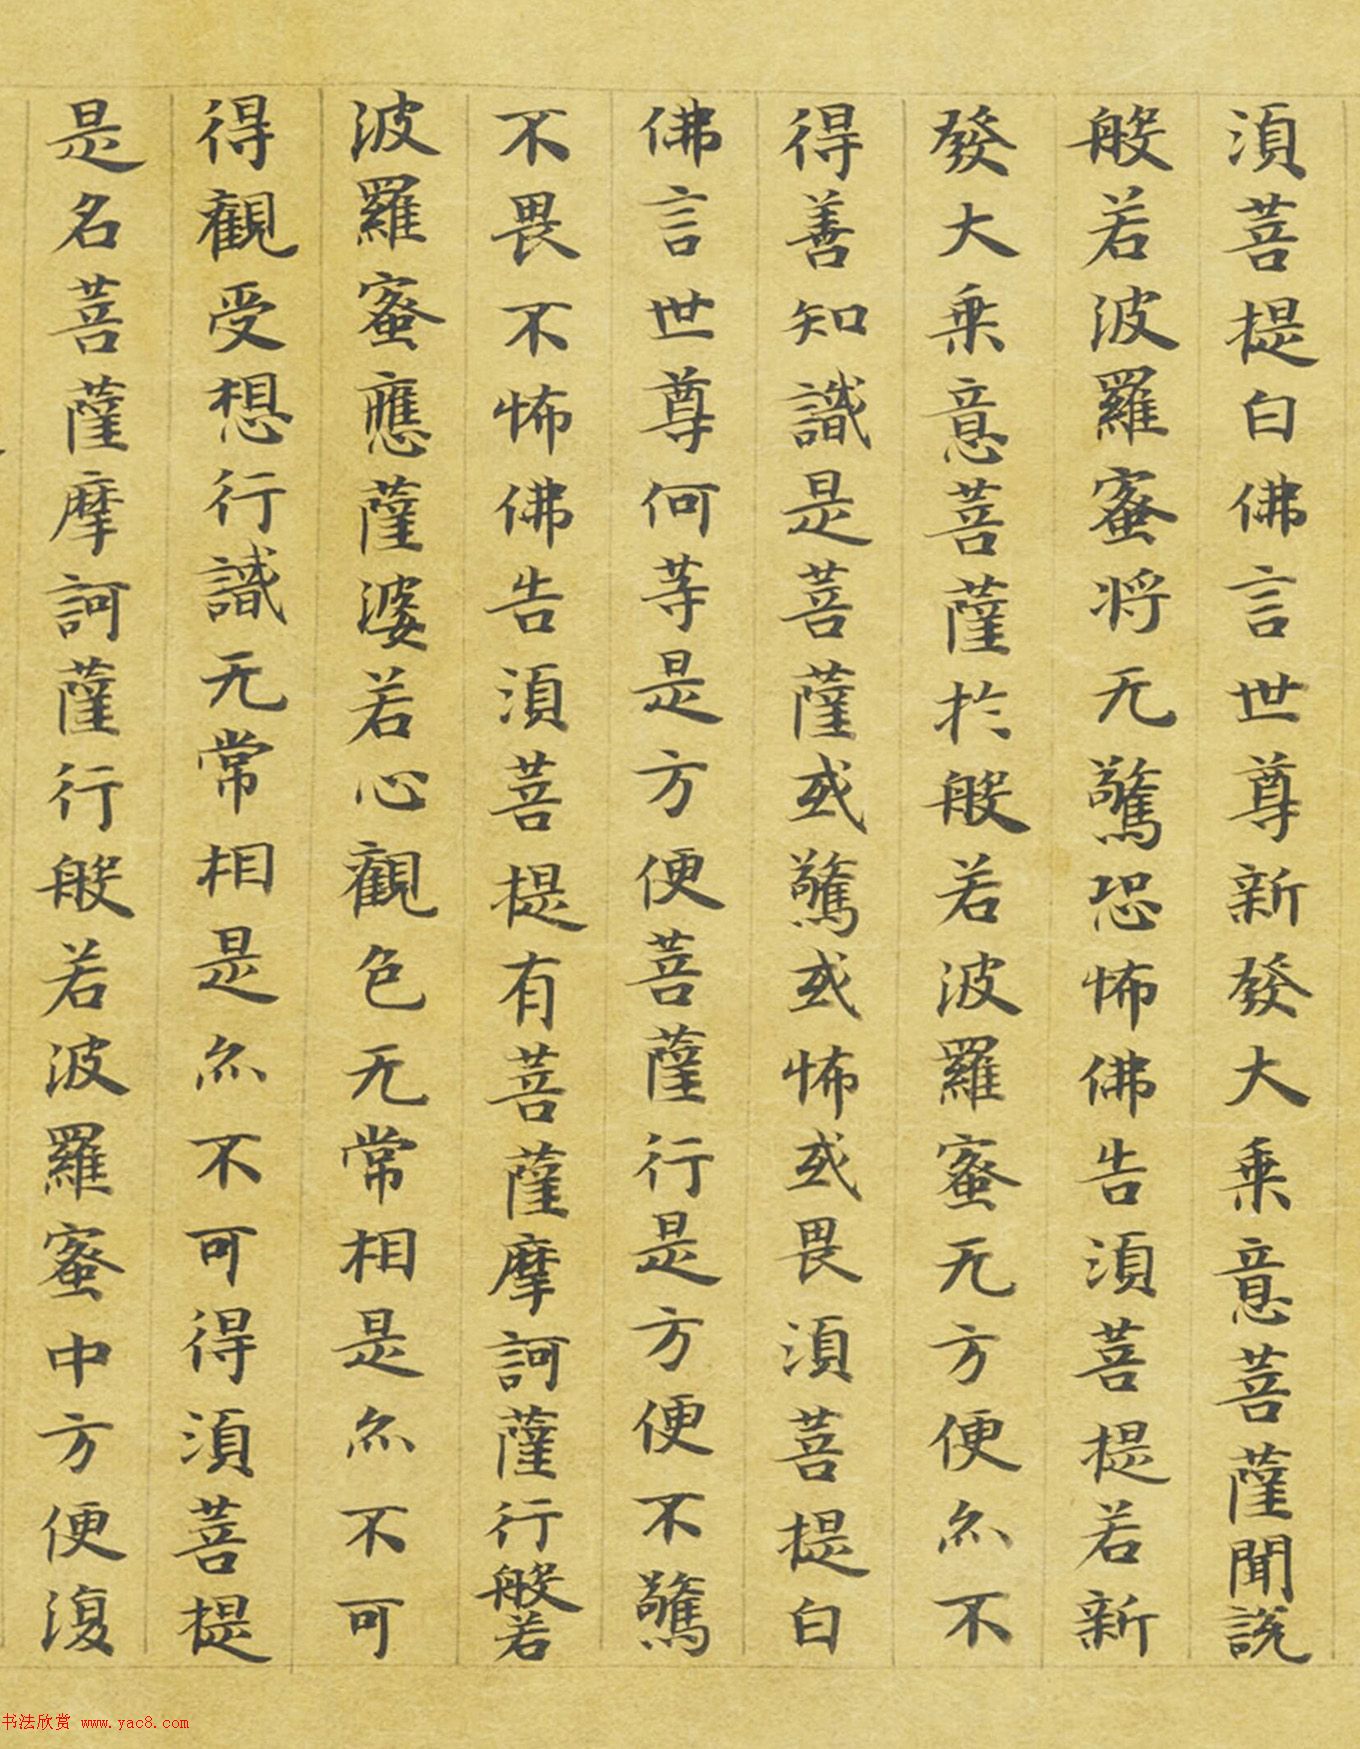 須菩提白佛言世尊新發大乘意菩薩聞說
般若波羅蜜将无驚恐怖佛告須菩提若新
發大乘意菩薩於般若波羅蜜无方便亦不
得善知識是菩薩或驚或怖或畏須菩提白
佛言世尊何等是方便菩薩行是方便不驚
不畏不怖佛告須菩提有菩薩摩訶薩行般若
波羅蜜應薩婆若心觀色无常相是亦不可
得觀受想行識无常相是亦不可得須菩提
是名菩薩摩訶薩行般若波羅蜜中方便復
书法欣赏 www.yac8.com